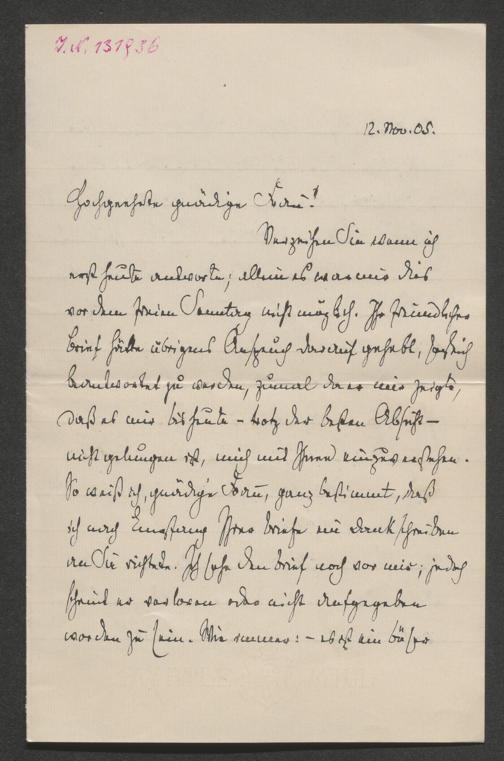 I. N. 131936
12. Nov. 05.
Hochgeehrte gnädige Frau!
Verzeihen Sie wenn ich
erst heute antworte; allein es war mir dies
vor dem freien Sonntag nicht möglich. Ihr freundlicher
Brief hätte übrigens Anspruch darauf gehabt,
beantwortet zu werden, zumal da er mir zeigte,
daß es mir bis heute – trotz der besten Absicht –
nicht gelungen ist, mich mit Ihnen
So weiß ich, gnädige Frau, ganz bestimmt, daß
ich nach Empfang Ihres Briefs ein Dankschreiben
an Sie richtete. Ich sehe den Brief noch vor mir; jedoch
scheint er verloren oder nicht aufgegeben
worden zu sein. Wie immer: – es ist ein böser